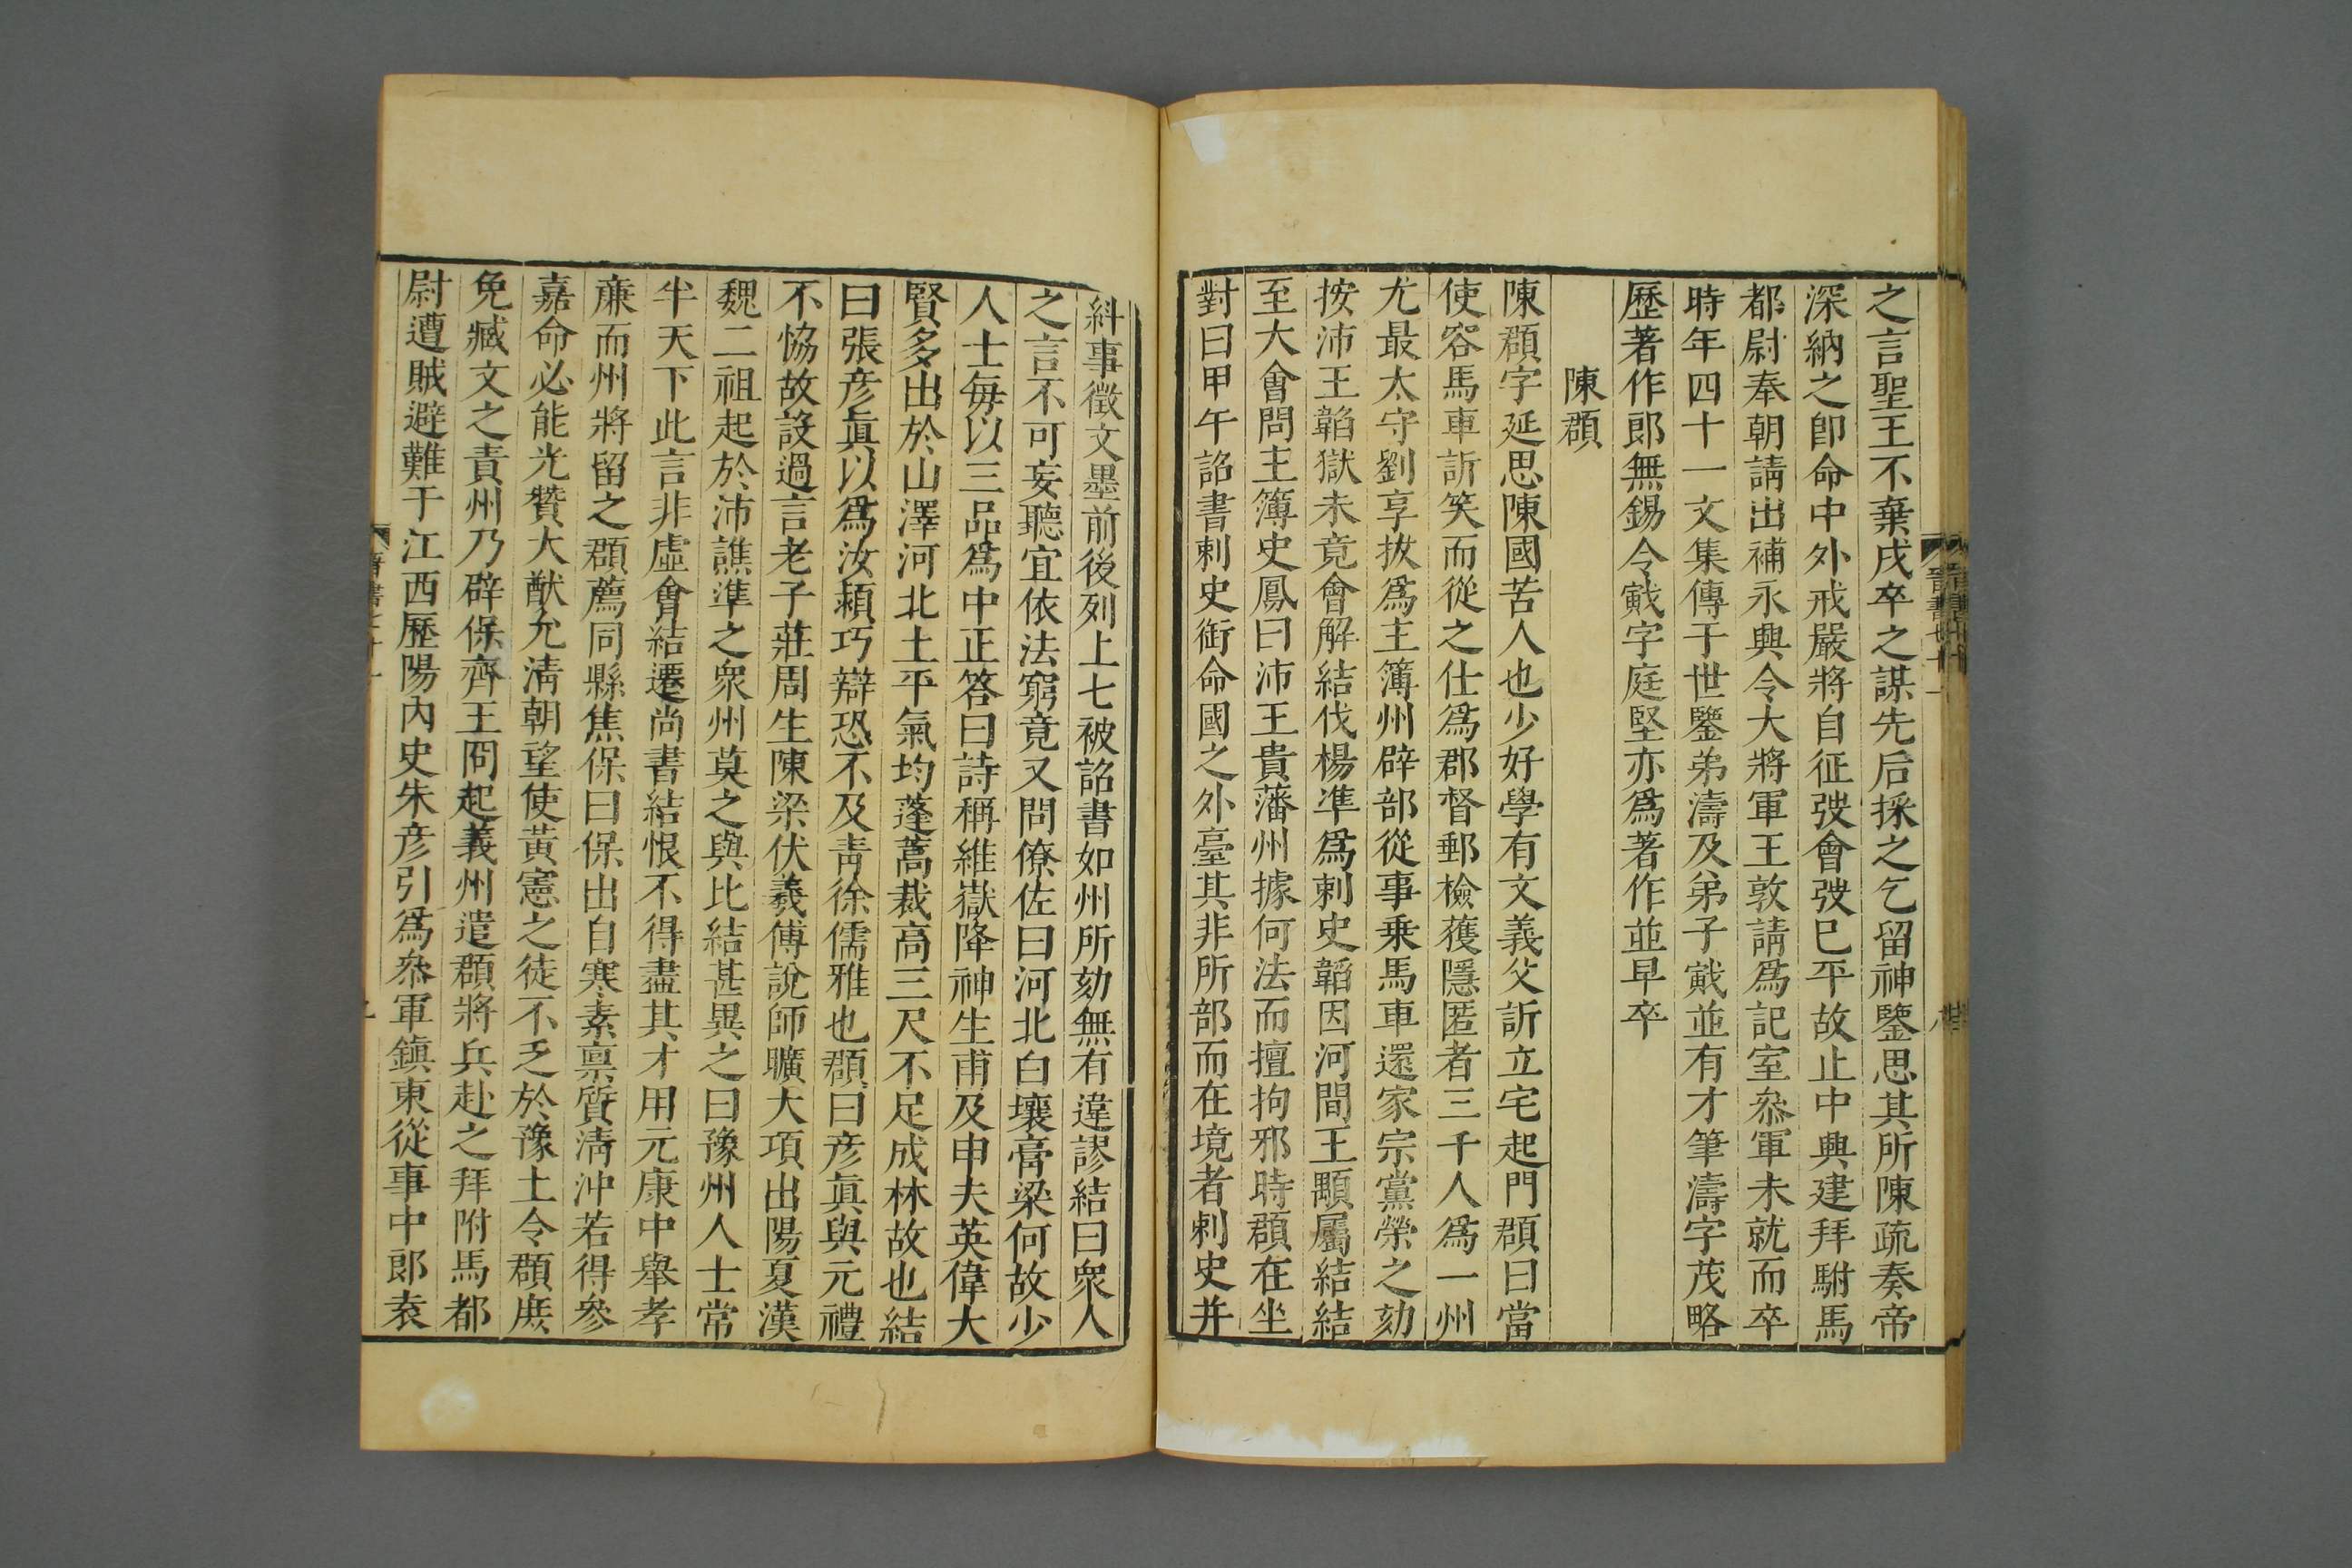 之言聖王不棄戍卒之謀先后採之乞留神鑒思其所陳疏奏帝
深納之卽命中外戒嚴將自征弢會弢已平故止中興建拜駙馬
都尉奉朝請出補永興令大將軍王敦請爲記室叅軍未就而卒
時年四十一文集傳于世鑒弟濤及弟子戭並有才筆濤字茂略
歷著作郎無錫令戭字庭堅亦爲著作並早卒
陳頵
陳頵字延思陳國苦人也少好學有文義父訢立宅起門頵曰當
使容馬車訢笑而從之仕爲郡督郵檢獲隱匿者三千人爲一州
尤最太守劉享拔爲主簿州辟部從事乗馬車還家宗黨榮之劾
按沛王韜獄未竟會解結伐楊準爲刺史韜因河間王顒屬結結
至大會問主簿史鳳曰沛王貴藩州據何法而擅拘邪時頵在坐
對曰甲午詔書刺史銜命國之外臺其非所部而在境者刺史并
糾事徵文墨前後列上七被詔書如州所劾無有違謬結曰衆人
之言不可妄聽宜依法窮竟又問僚佐曰河北白壤膏梁何故少
人士每以三品爲中正答曰詩稱維嶽降神生甫及申夫英偉大
賢多出於山澤河北土平氣均蓬蒿裁高三尺不足成林故也結
曰張彦眞以爲汝潁巧辯恐不及靑徐儒雅也頵曰彦眞與元禮
不恊故設過言老子莊周生陳梁伏羲傅說師曠大項出陽夏漢
魏二祖起於沛譙準之衆州莫之與比結甚異之曰豫州人士常
半天下此言非虛會結遷尚書結恨不得盡其才用元康中舉孝
廉而州將留之頵薦同縣焦保曰保出自寒素禀質淸冲若得參
嘉命必能光贊大猷允淸朝望使黃憲之徒不乏於豫土令頵庶
免臧文之責州乃辟保齊王冏起義州遣頵將兵赴之拜附馬都
尉遭賊避難于江西歷陽內史朱彦引爲叅軍鎭東從事中郎袁
晉書七十一